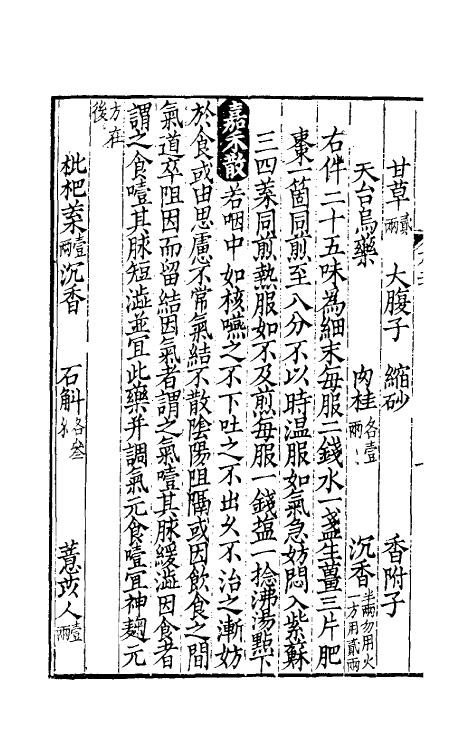 甘草貳兩 大腹子 縮砂 香附子
天台烏藥 肉桂各壹兩 沉香半兩勿用火一方用貳兩
右件二十五味為細末每服二錢水一盞生薑三片肥
棗一箇同煎至八分不以時温服如氣急妨悶入紫蘇
三四葉同煎熱服如不及煎每服一錢塩一捻沸湯點下
嘉禾散 若咽中如核嚥之不下吐之不出久不治之漸妨
於食或由思慮不常氣結不散陰陽阻隔或因飲食之間
氣道卒阻因而留結因氣者謂之氣噎其脉緩澁因食者
謂之食噎其脉短澁並宜此藥并調氣元食噎宜神麹元
方在後
枇杷葉壹兩 沉香 石斛各叁 薏苡人壹兩